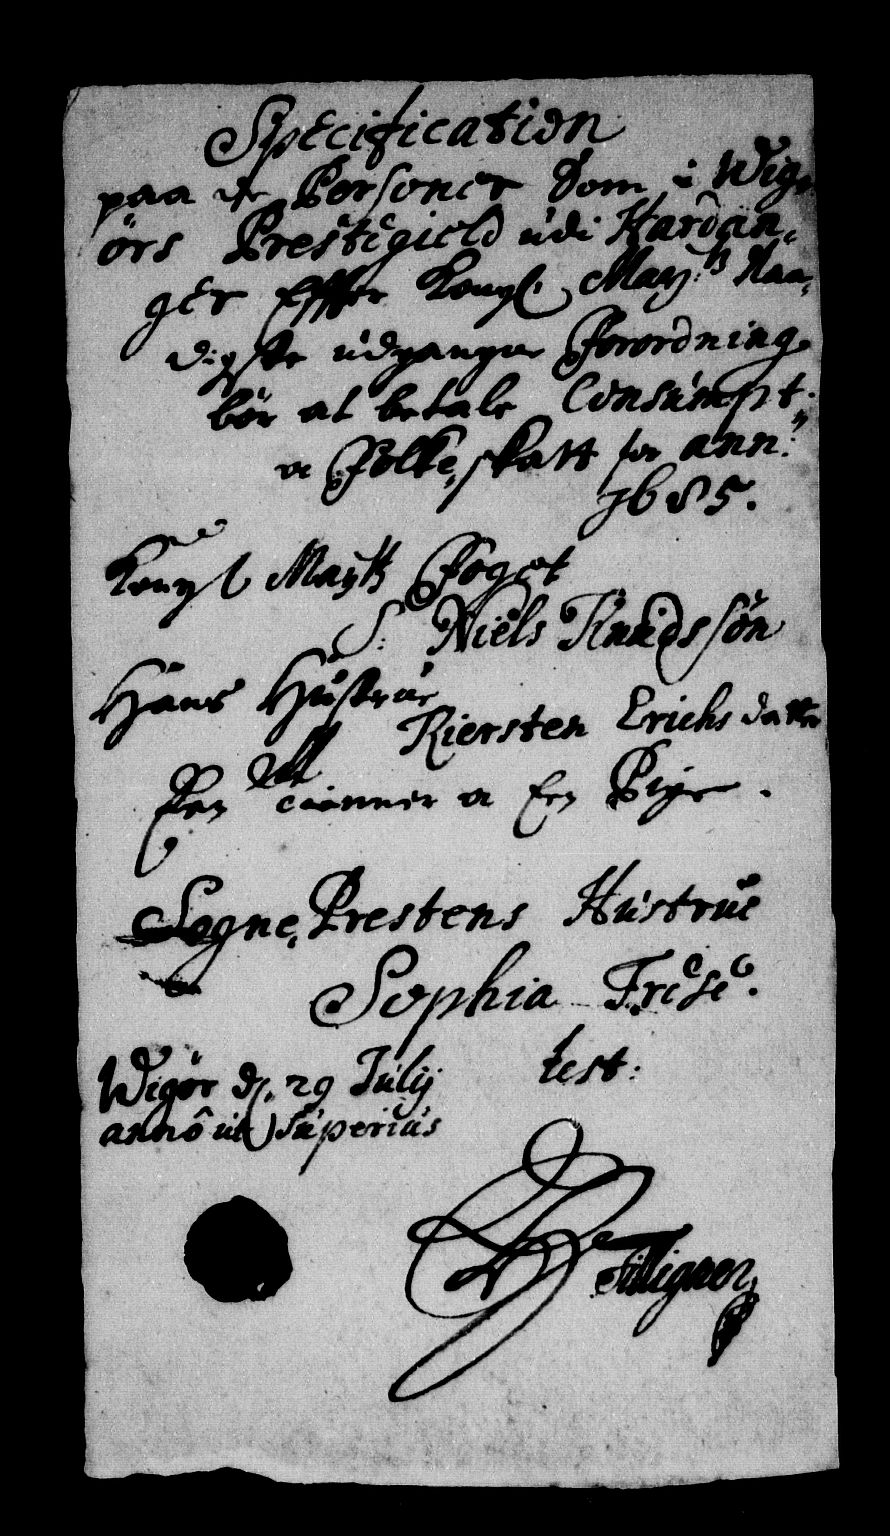 Specification
paa de Personer Som i Wig,
örs Prestegield udi Hardan,,
ger Effter Kongl. Mayts Naa,
digste udgangne Forordning
bör at betale Consumpt.
oc Folke,skatt for ann:
1685.
Kongl Mayts Foget
S: Niels Knudssön
Hans Hustrue
Kiersten Erichs datter
Een tienner oc Een Pige.
Sogne,Prestens Hustrue
Sophia Frese.
Wigör d. 29 Julij test:
anno ut Superius